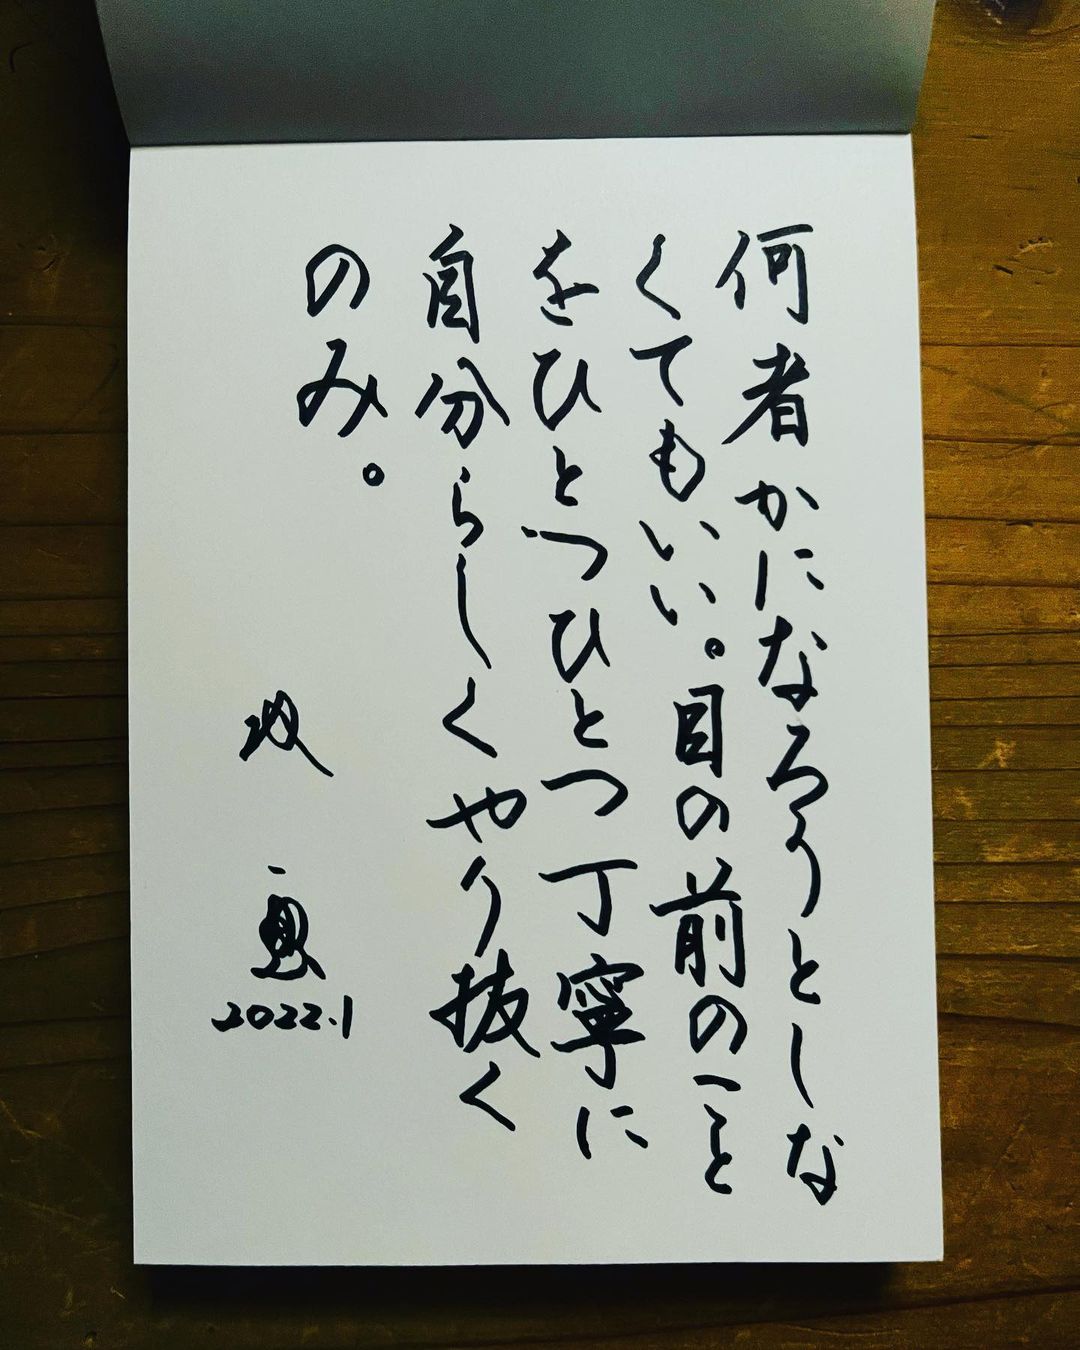 何者かになろうとしな
くてもいい。目の前のこと
をひとつひとつ丁寧に
自分らしくやり抜く
のみ。
2022.1